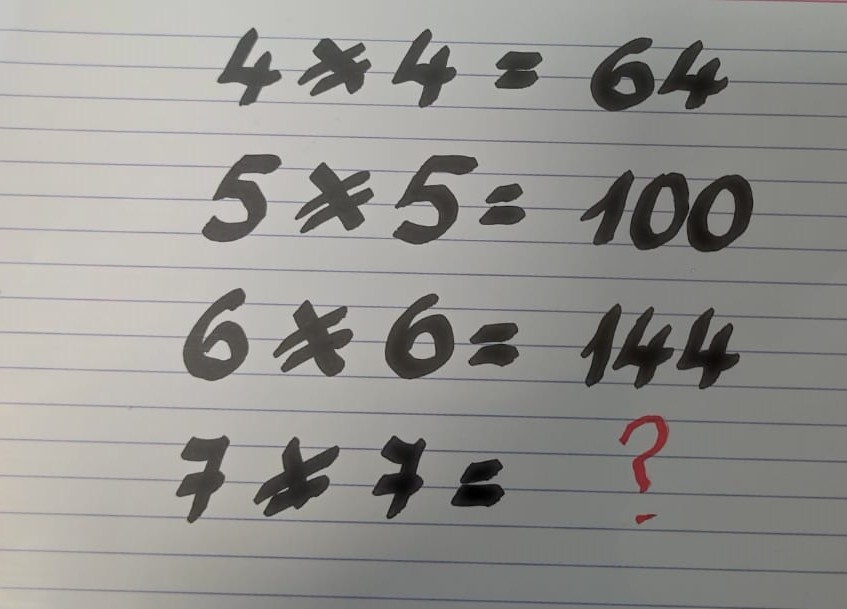 4 × 4 = 64
5 × 5 = 100
6 × 6 = 144
7 × 7 = ?